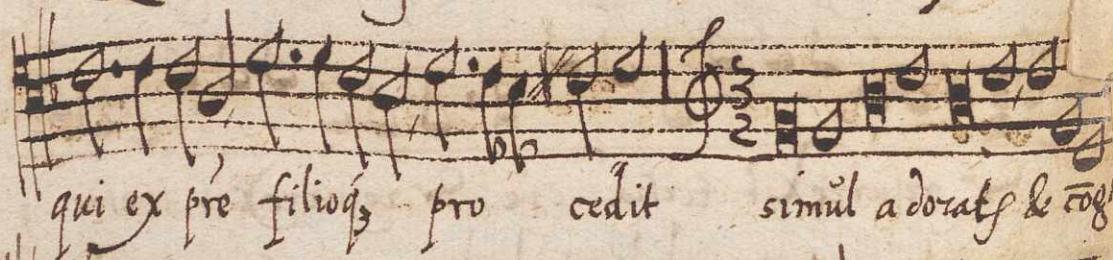 qui ex pre filioqꝫ pro cedit simul adoratꝭ & cōg